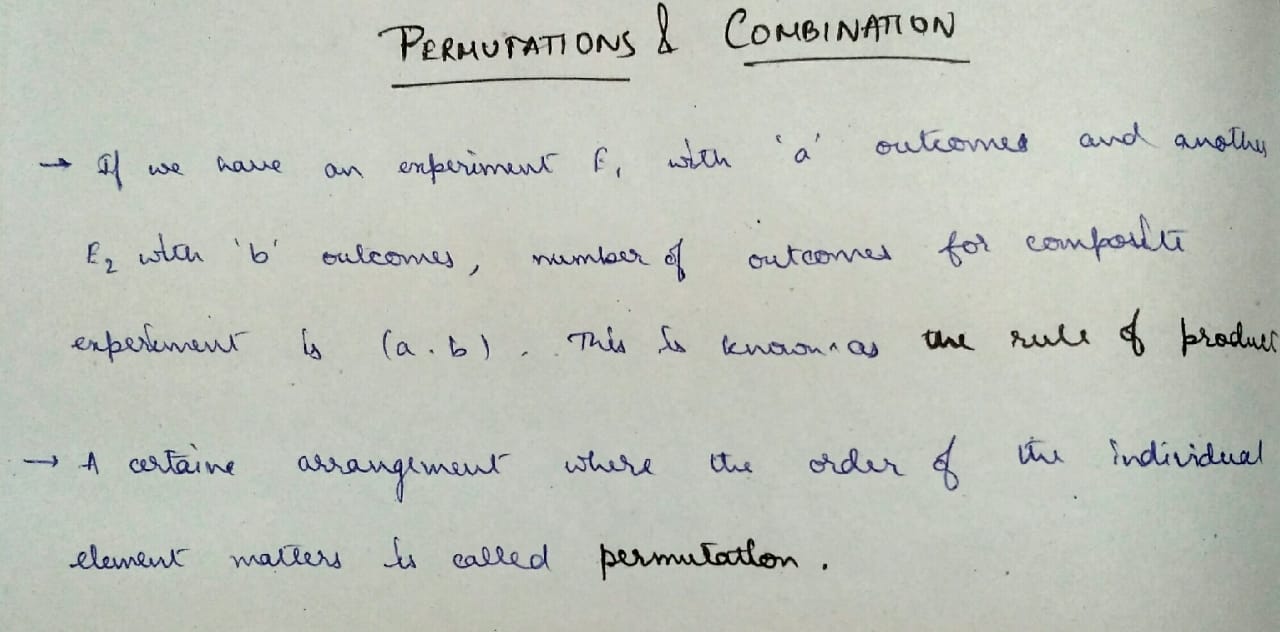 PERMUTATIONS & COMBINATION
→ If we have an experiment E₁ with 'a' outcomes and another
E₂ with 'b' outcomes, number of outcomes for composite
experiment is (a.b). This is known as the rule of product
→ A certaine arrangement where the order of the individual
element matters is called permutation.